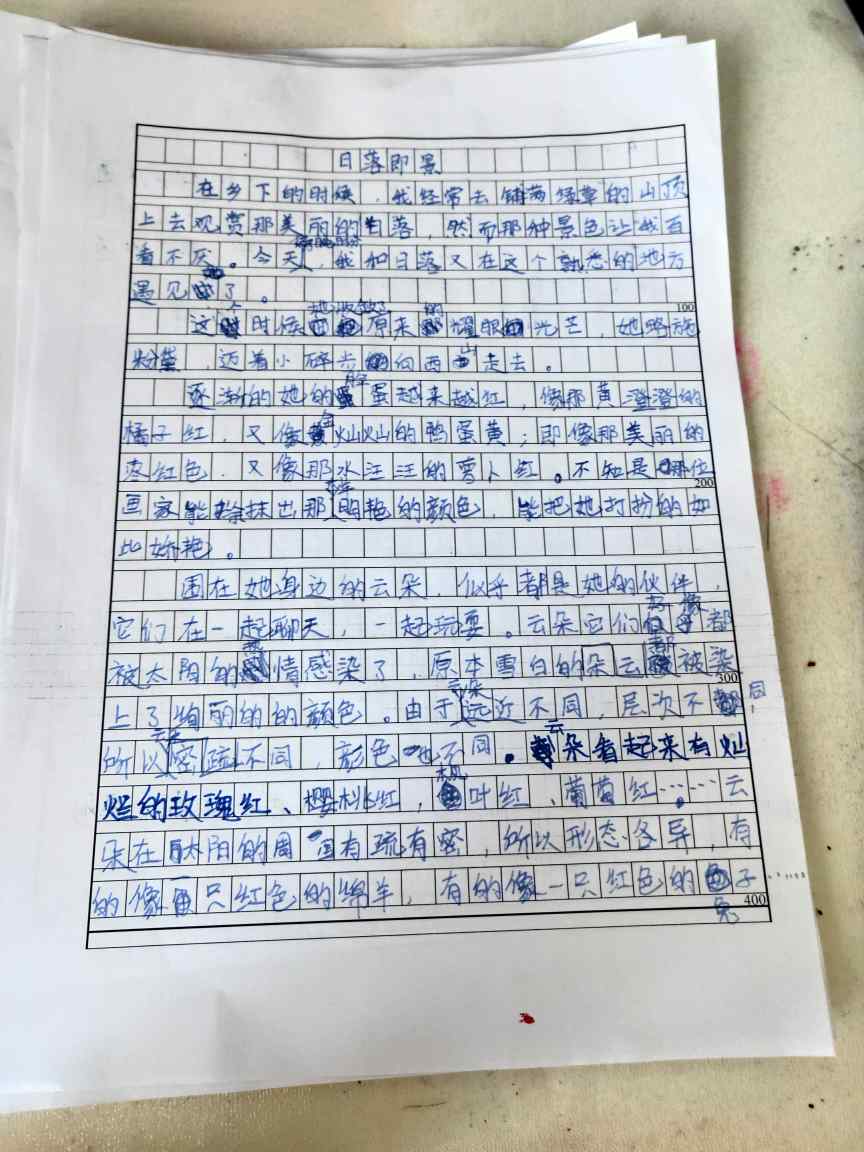 日落即景
在乡下的时候，我经常去铺满绿草的山顶
上去观赏那美丽的日落，然而那种景色让我百
看不厌。今天，我和日落又在这个熟悉的地方
遇见了。
100
这个时候她收敛了原来的耀眼光芒，她略施
粉黛，迈着小碎步向西山走去。
逐渐的她的脸蛋越来越红，像那黄澄澄的
橘子红，又像金灿灿的鸭蛋黄；即像那美丽的
枣红色，又像那水汪汪的萝卜红。不知是那位
200
画家能涂抹出那鲜艳的颜色，能把她打扮的如
此娇艳。
围在她身边的云朵，似乎都是她的伙伴，
它们在一起聊天，一起玩耍。云朵它们好像都
被太阳的热情感染了，原本雪白的朵云都被染
300
上了绚丽的的颜色。由于云朵远近不同，层次不同，
所以云朵密疏不同，彩色也不同。云朵看起来有灿
烂的玫瑰红、樱桃红，枫叶红、葡萄红……云
朵在太阳的周围有疏有密，所以形态各异，有
的像一只红色的绵羊，有的像一只红色的兔子……
400